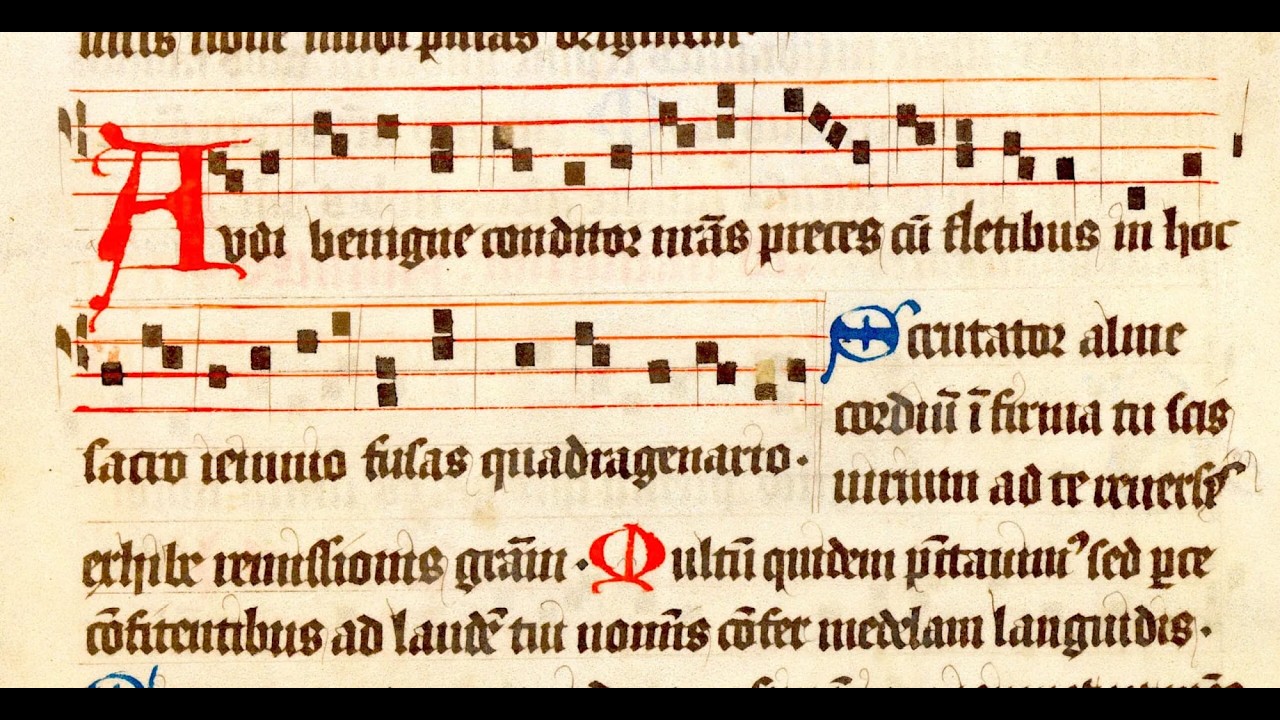 Avdi benigne conditor nrãs preces cũ fletibus in hoc
sacro ieiunio fusas quadragenario.
Scrutator alme
cordiũ ĩfirma tu scis
uirium ad te reuersis
exhibe remissionis grãm. Multũ quidem peccauimꝰ sed ꝑce
cõfitentibus ad laudẽ tui nomĩs cõfer medelam languidis.